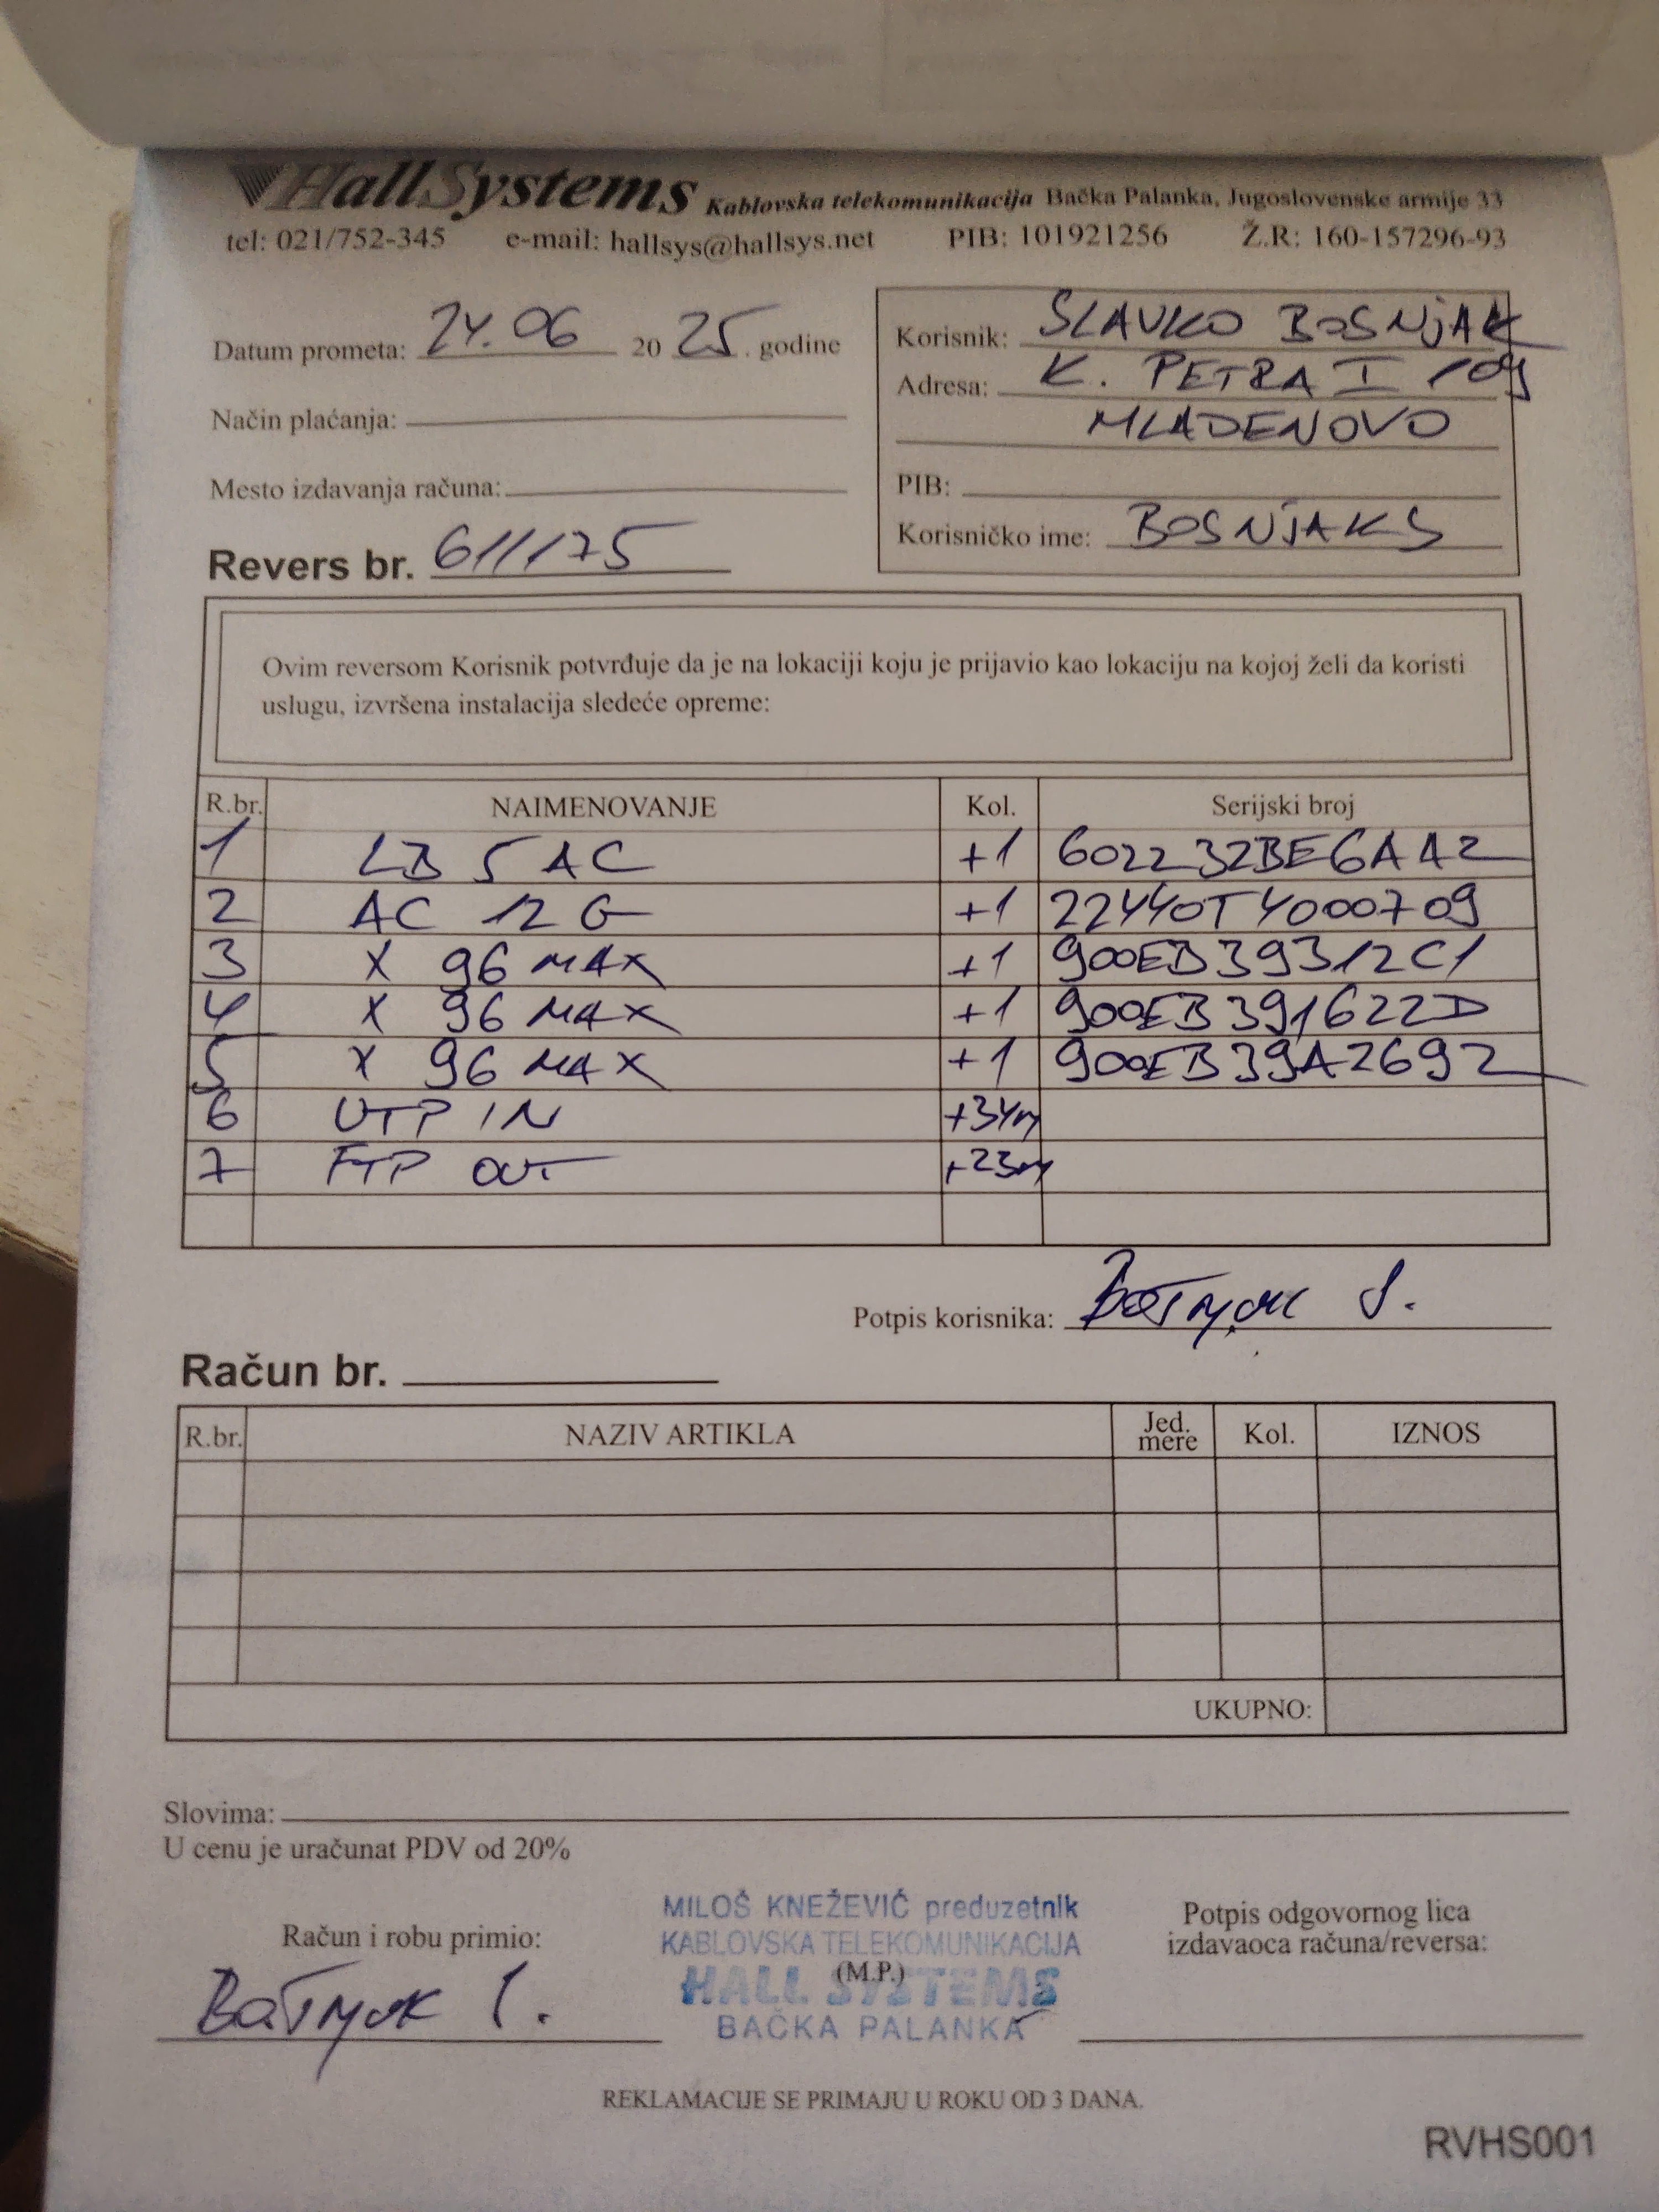 HallSystems Kablovska telekomunikacija Bačka Palanka, Jugoslovenske armije 33
tel: 021/752-345 e-mail: hallsys@hallsys.net PIB: 101921256 Ž.R: 160-157296-93
Datum prometa: 24.06 2025. godine
Način plaćanja:
Mesto izdavanja računa:
Revers br. 611175
Korisnik: SLAVKO BOSNjAK
Adresa: K. PETRA I 109
MLADENOVO
PIB:
Korisničko ime: BOSNjAKS
Ovim reversom Korisnik potvrđuje da je na lokaciji koju je prijavio kao lokaciju na kojoj želi da koristi
uslugu, izvršena instalacija sledeće opreme:
R.br. NAIMENOVANJE Kol. Serijski broj
1 LB 5 AC +1 602232BE6AA2
2 AC 12 G +1 22440TY000709
3 X 96 MAX +1 900EB39312C1
4 X 96 MAX +1 900EB391622D
5 X 96 MAX +1 900EB39A2692
6 UTP IN +34m
7 FTP OUT +23m
Potpis korisnika:
Račun br.
R.br. NAZIV ARTIKLA Jed. mere Kol. IZNOS
UKUPNO:
Slovima:
U cenu je uračunat PDV od 20%
Račun i robu primio:
MILOŠ KNEŽEVIĆ preduzetnik
KABLOVSKA TELEKOMUNIKACIJA
(M.P.)
HALL SYSTEMS
BAČKA PALANKA
Potpis odgovornog lica
izdavaoca računa/reversa:
REKLAMACIJE SE PRIMAJU U ROKU OD 3 DANA.
RVHS001